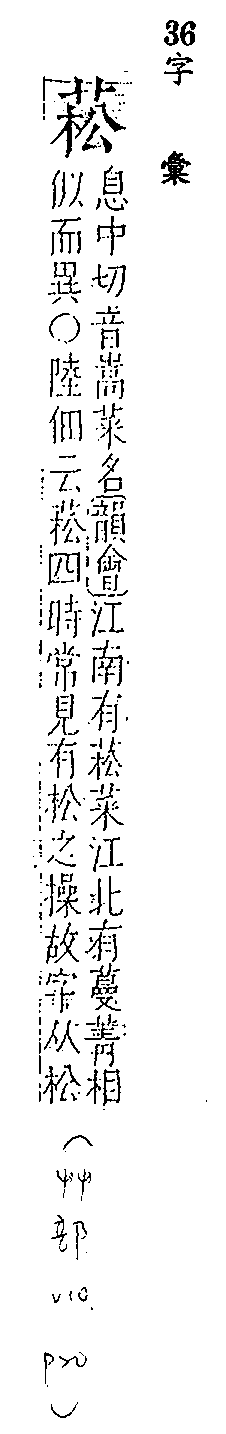 36
字彙
菘
息中切音嵩菜名韻會江南有菘菜江北有蔓菁相
似而異○陸佃云菘四時常見有松之操故字从松
(艸部
v10.
p20)